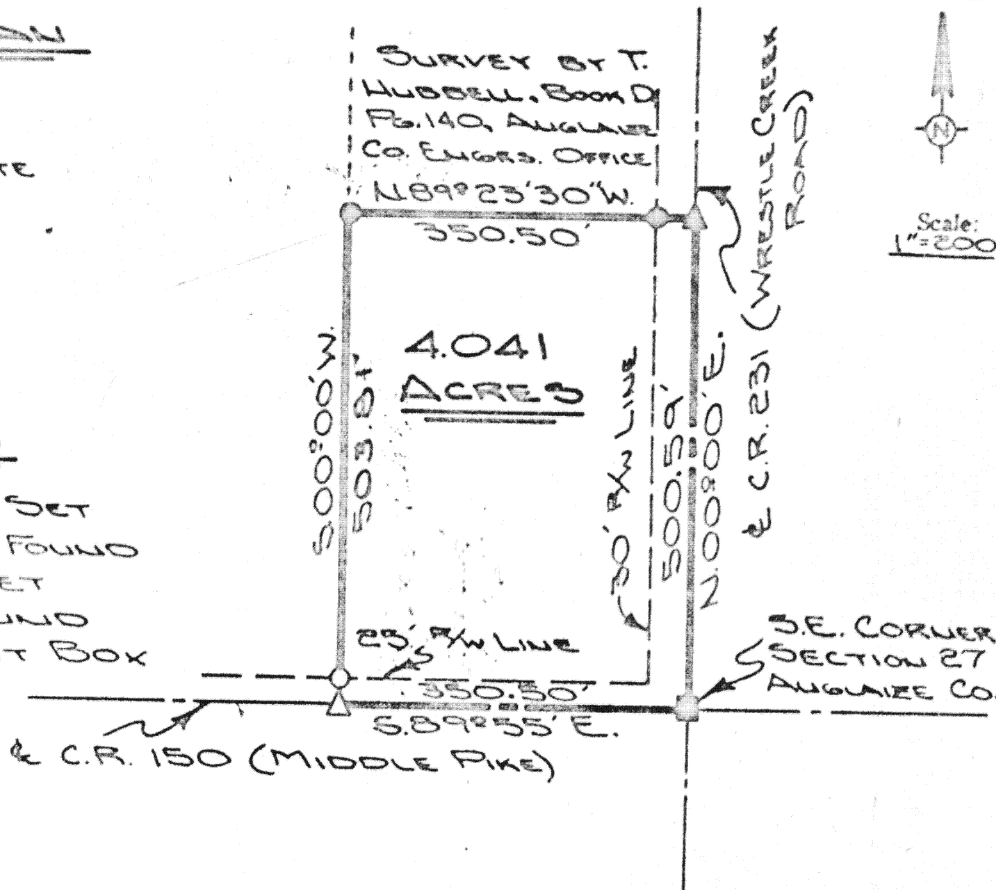 SURVEY BY T.
HUBBELL, BOOK D
PG. 140, AUGLAIZE
CO. ENGRS. OFFICE
N.89°23'30"W.
350.50'
℄ C.R. 231 (WRESTLE CREEK
ROAD)
N
Scale:
1"=200
4.041
ACRES
S.00°00'W.
503.81'
30' R/W LINE
500.59'
N.00°00'E.
SET
FOUND
BOX
25' R/W LINE
350.50'
S.89°55'E.
S.E. CORNER
SECTION 27
AUGLAIZE CO.
℄ C.R. 150 (MIDDLE PIKE)